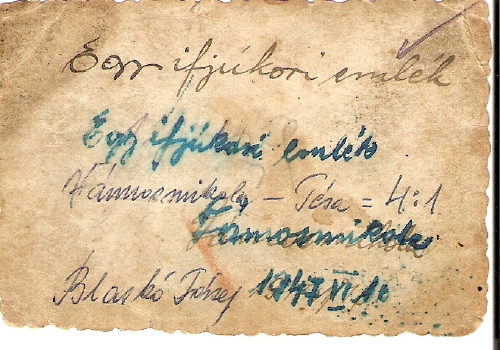 Egy ifjúkori emlék
Egy ifjúkori emlék
Vámosmikola - Tésa = 4:1
Vámosmikola
Blaskó József 1947 VI 10